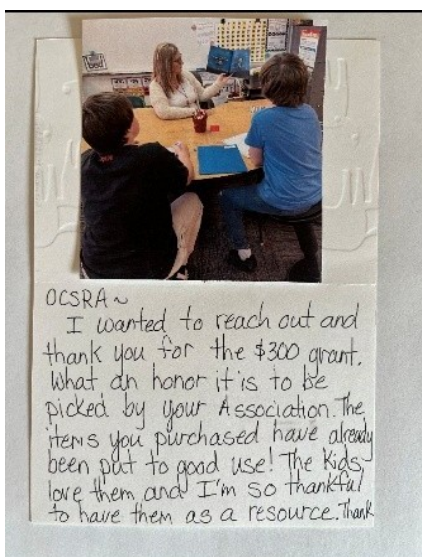 bed
OCSRA~
I wanted to reach out and
thank you for the $300 grant.
What an honor it is to be
picked by your Association. The
items you purchased have already
been put to good use! The kids
love them and I'm so thankful
to have them as a resource. Thank